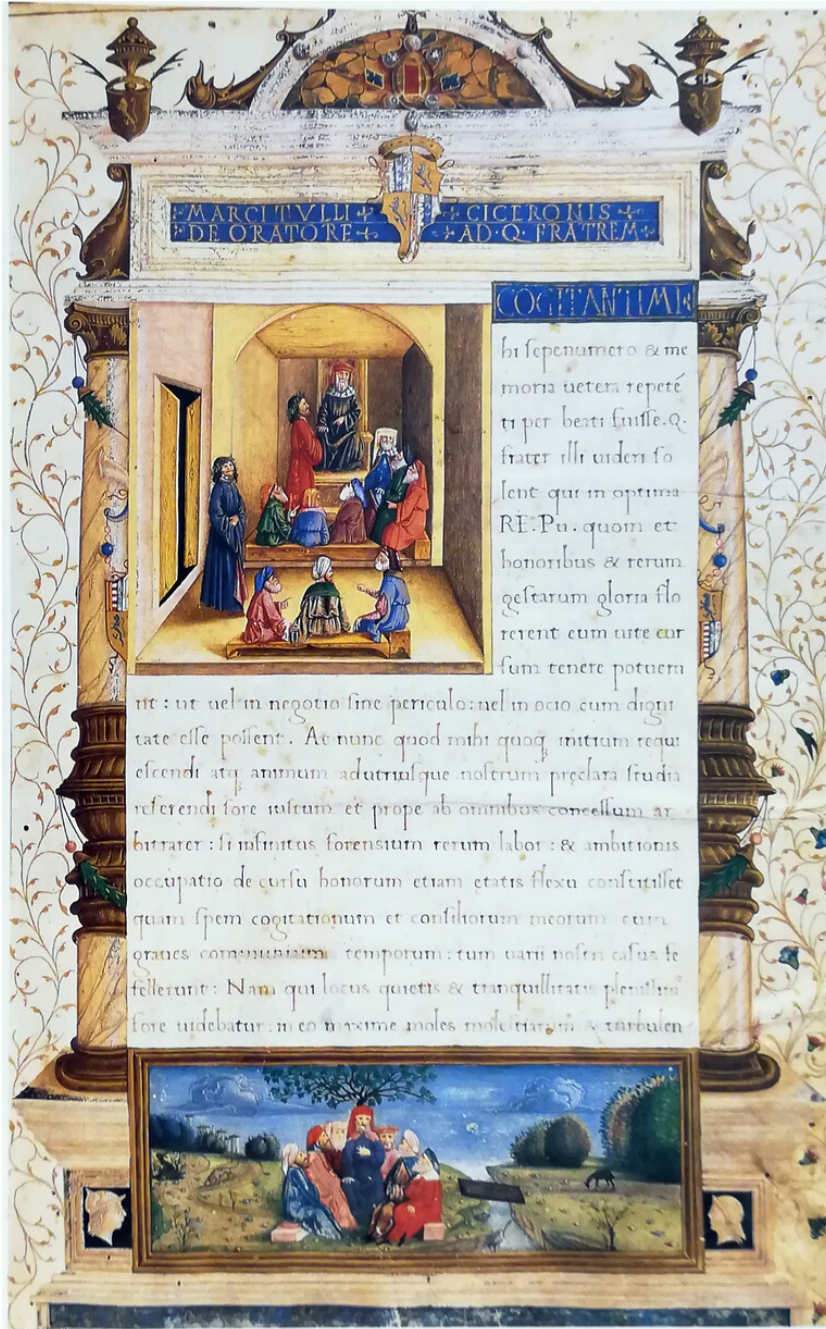 MARCI TVLLI CICERONIS
DE ORATORE AD·Q·FRATREM
COGITANTI MI
hi sepenumero & me
moria uetera repeté
ti per beati fuisse.Q.
frater illi uideri so
lent qui in optima
RE.Pu. quom et
honoribus & rerum
gestarum gloria flo
rerent eum uite cur
sum tenere potueru
nt: ut uel in negotio sine periculo: uel in ocio cum digni
tate esse possent. Ac nunc quod mihi quoq initium requi
escendi atq animum adutriusque nostrum pręclara studia
referendi fore iustum et prope ab omnibus concessum ar
bitrarer: si infinitus forensium rerum labor: & ambitionis
occupatio decursu honorum etiam ętatis flexu constitisset
quam spem cogitationum et consiliorum meorum cum
graues communium temporum: tum uarii nostri casus fe
fellerunt: Nam qui locus quietis & tranquillitatis plenissimꝰ
fore uidebatur: in eo maxime moles molestiarum & turbulen